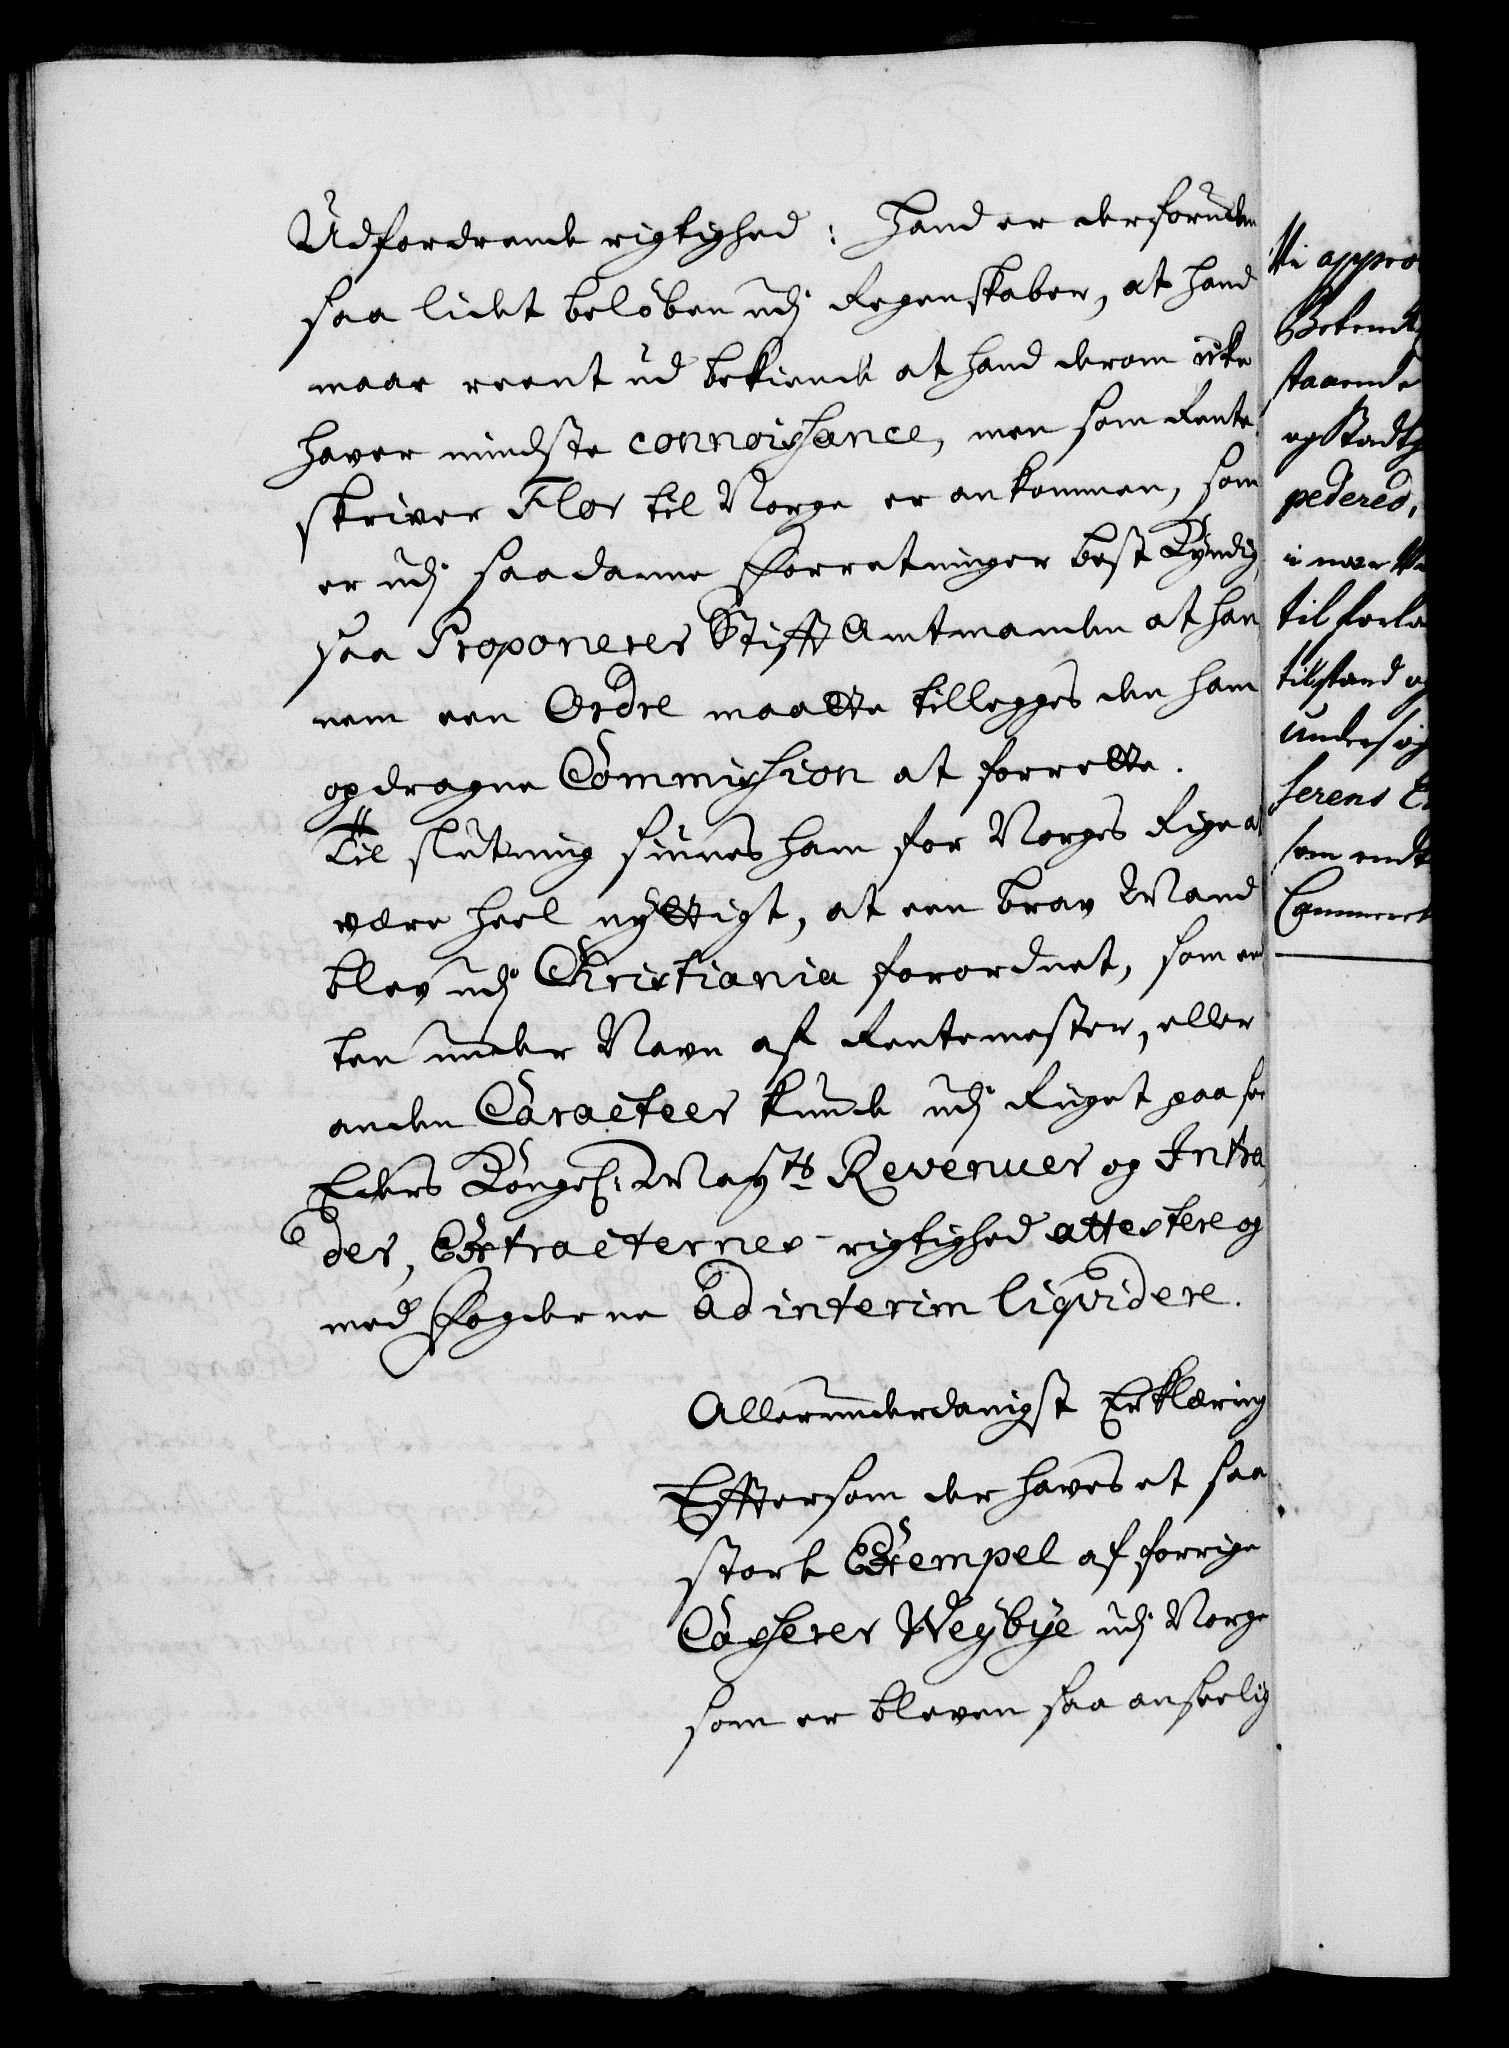 Udfordrende rigtighed: Hand er derforuden
saa lidet beløben udj Regenskaber, at hand
maae reent ud bekiende at hand derom icke
haver mindste connoishance, men som Rente
skriver Flor til Norge er ankommen, som
er udj saadanne Forretninger best Kyndig,
saa Proponeres Stifft Amtmanden at han
nem een Ordre maatte tillegges den ham
opdragne Commishion at forrette.
Til slutning siunes ham for Norges Rige at
være heel nyttigt, at een brav Mand
blev udj Christiania forordnet, som en
ten under Navn af Rentemester, eller
anden Caracteer kunde udj Riiget paa see
Eders Kongel: Maÿts Revenuer og Intra
der, Extracternes rigtighed attestere og
med Fogderne ad interim liqvidere.
Allerunderdanigst Erklæring
Efftersom der haves et saa
stort Exempel af forrige
Casherer Weÿbÿe udj Norge
som er bleven saa anseelig
Vi appro
Betænk
staaende
og Stadth
pedered,
i
til forla
tilstand og
undersøg
serens
som endt
Cammeret